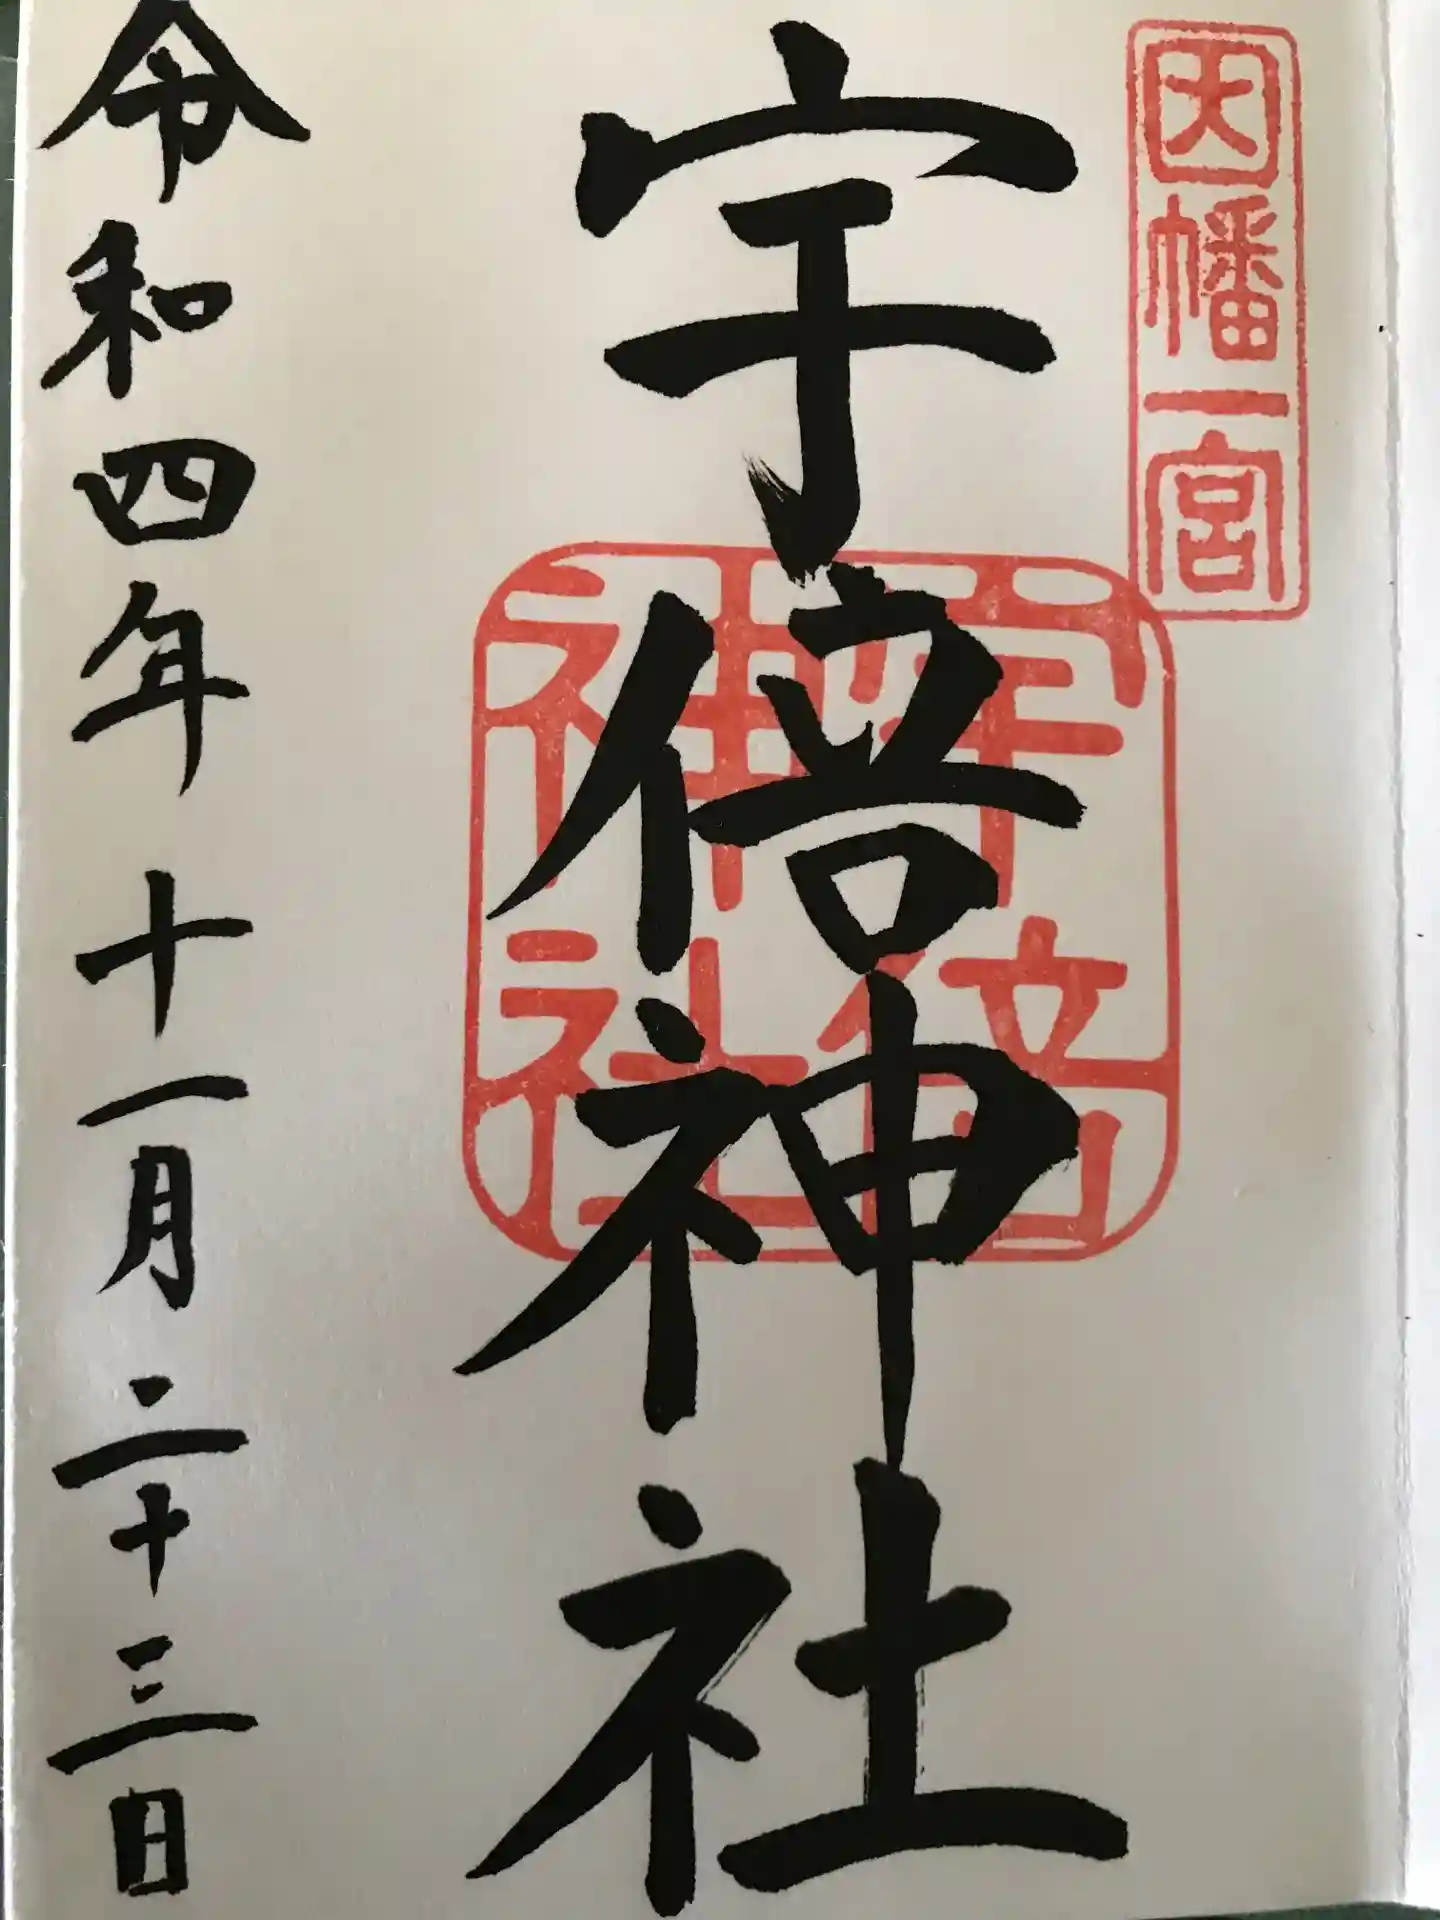 因幡一宮
宇倍神社
宇倍神社
令和四年十一月二十三日